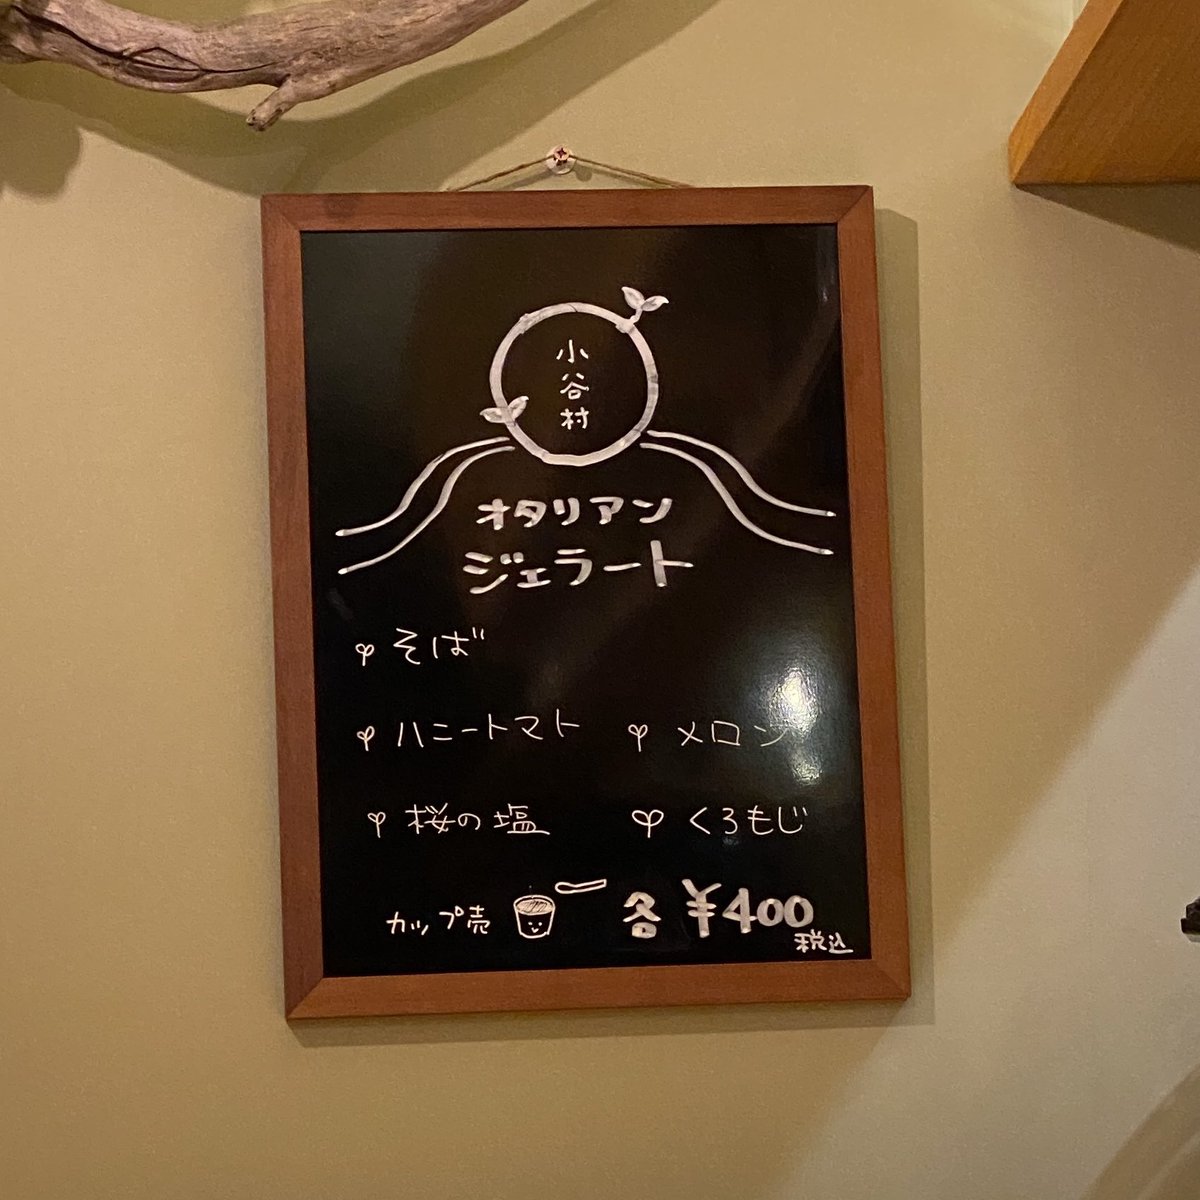 小谷村
オタリアン
ジェラート
そば
ハニートマト メロン
桜の塩 くろもじ
カップ売 各 ¥400
税込